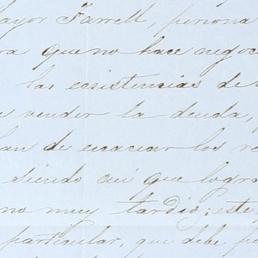 ayor Farrell, persona
ra que no hace negoc
las ecsistencias de
vender la deuda,
an de escaciar los r
siendo así que logra
no muy tardio; este
particular, que debe p